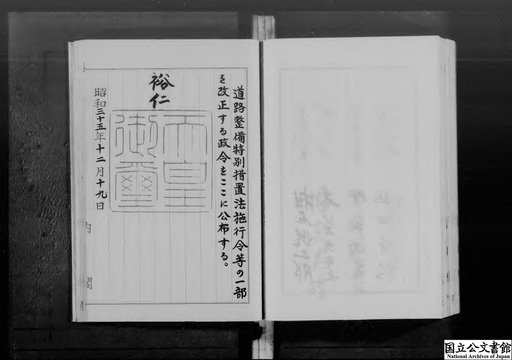 道路整備特別措置法施行令等の一部
を改正する政令をここに公布する。
裕仁
天皇御璽
昭和三十五年十二月十九日
内閣
国立公文書館
National Archives of Japan